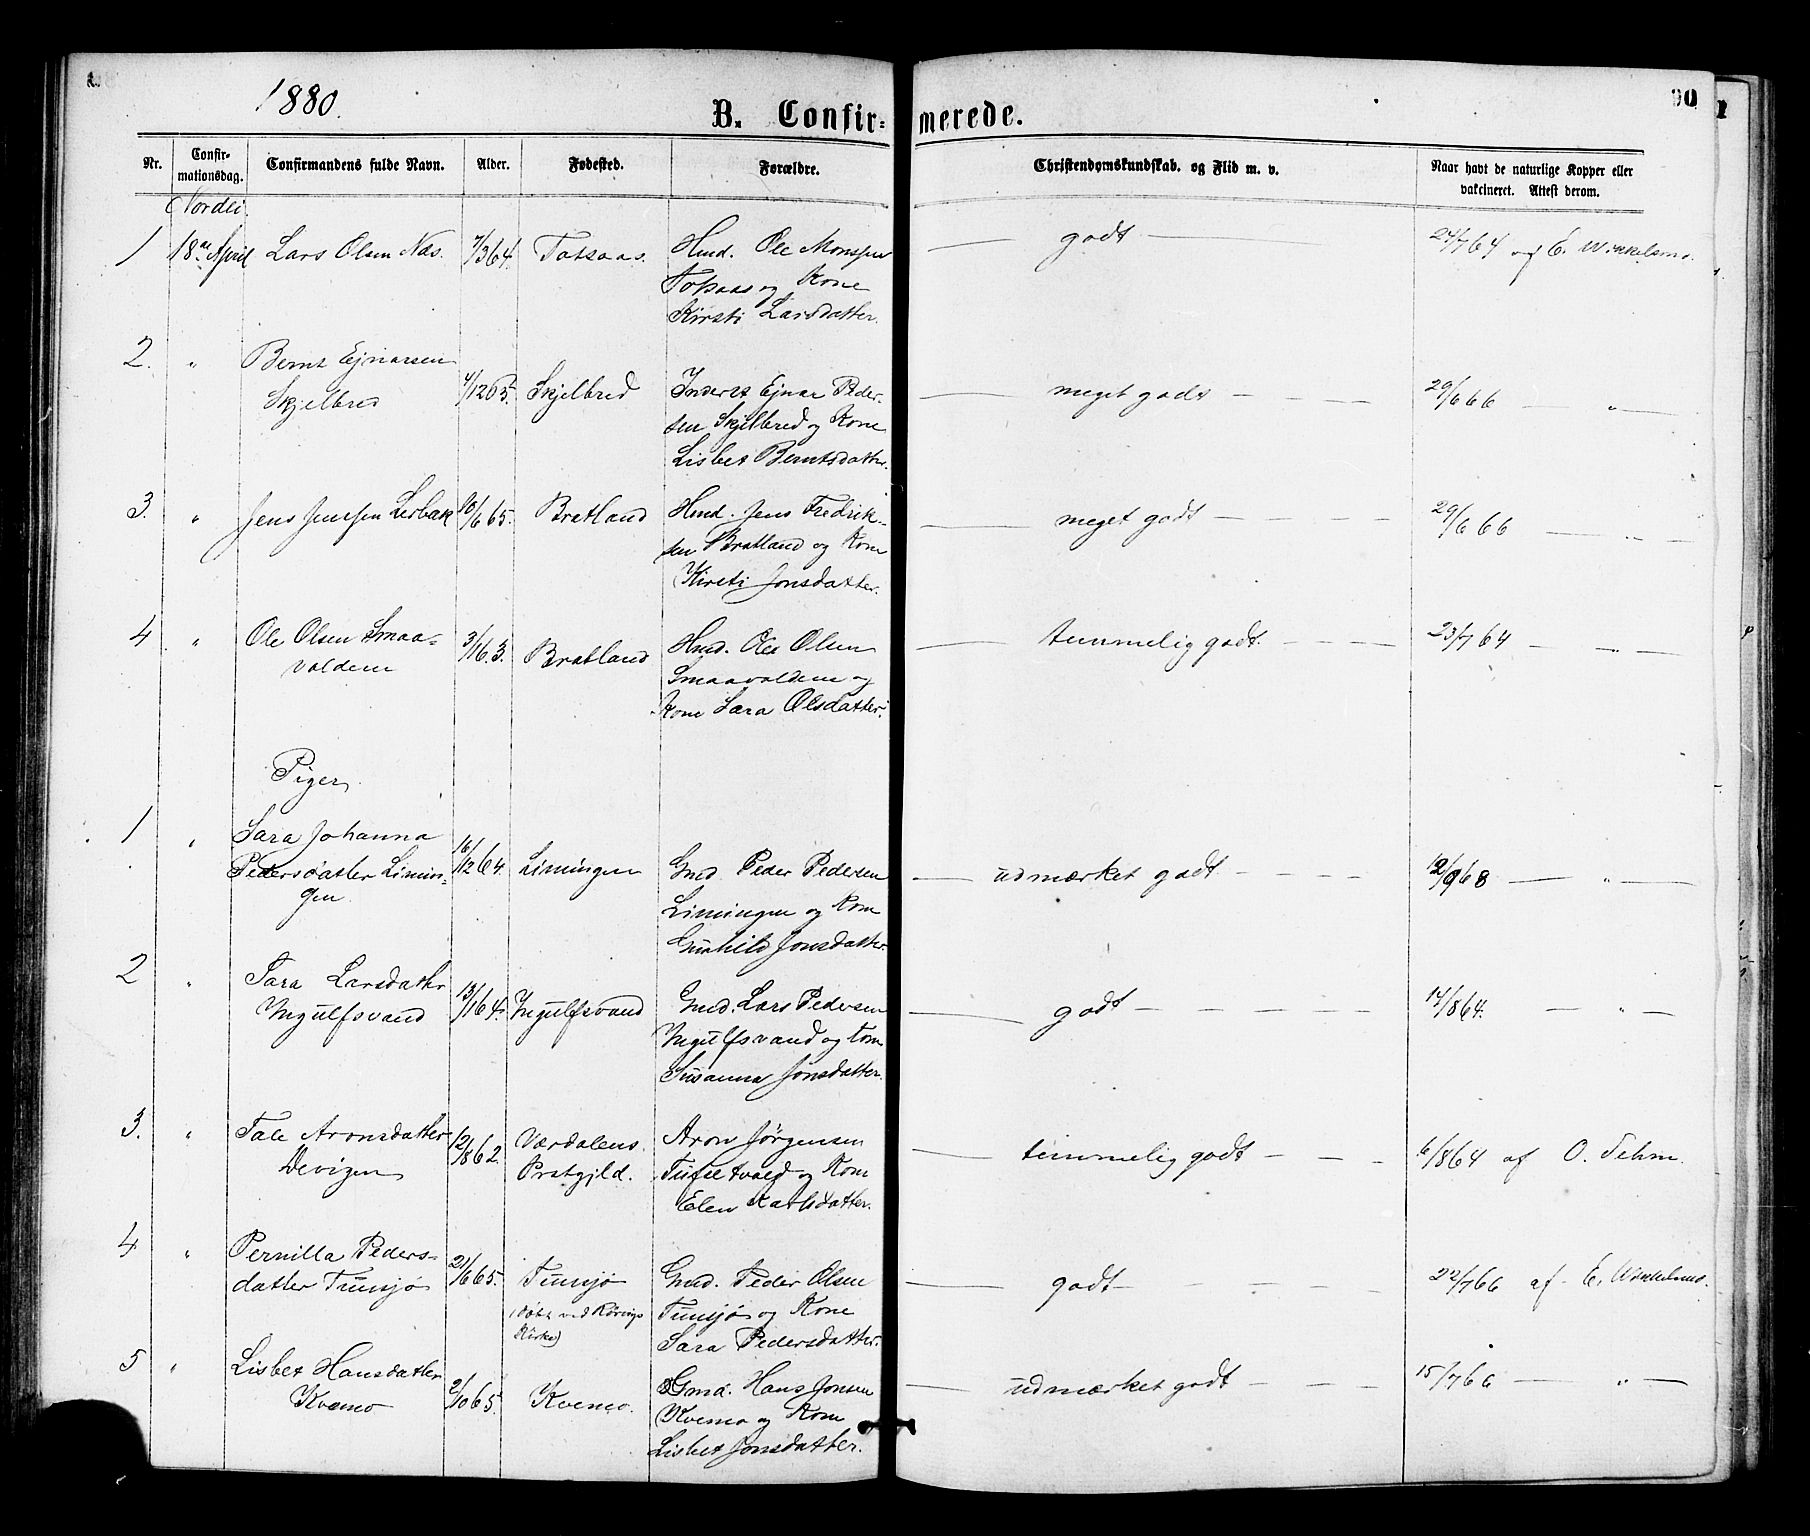 1880.
90
B. Confirmerede.
Nr. Confirmationsdag. Confirmandens fulde Navn. Alder. Fødested. Forældre. Christendomskundskab, og Flid m. v. Naar havt de naturlige Kopper eller vakcineret. Attest derom.
Nordli
1 18de April Lars Olsen Næs. 7/3 64. Totsaas. Hmd. Ole Monsen — godt — 24/7 64 af E. Winkelsmo.
Totsaas og Kone
Kirsti Larsdatter.
2. " Bernt Ejnarsen
Skjelbred 4/12 65. Skjelbred Inderst Ejnar Peder- — meget godt — — — — 29/6 66 — " —
sen Skjelbred og Kone
Lisbet Berntsdatter.
3. " Jens Jensen Lerbak 10/6 65. Bratland Hmd. Jens Fredrik- — meget godt — — — — 29/6 66 — " —
sen Bratland og Kone
Kirsti Jonsdatter.
4 " Ole Olsen Smaa-
voldene 3/1 63. Bratland Hmd. Ole Olsen — temmelig godt. — — — 23/7 64 — " —
Smaavoldene og
Kone Sara Olsdatter.
Piger
1 " Sara Johanna
Pedersdatter Limin-
gen 16/12 64. Limingen Gmd. Peder Pedersen — udmærket godt — — — — " —
Limingen og Kone
Gunhild Jonsdatter.
2 " Sara Larsdatter
Ingulfsvand 13/1 64. Ingulfsvand Gmd. Lars Pedersen — godt — — — — — 14/8 64. — " —
Ingulfsvand og Kone
Susanna Jonsdatter.
3. " Tale Aronsdatter
Devigen 12/8 62. Værdalens
Prstgjld. Aron Jørgensen — temmelig godt — — — 6/8 64 af O. Sehm.
og Kone
Elen
4 " Pernilla Peders-
datter Tunsjø 21/6 65. Tunsjø
(døbt ved Rørvigs
Kirke) Gmd. Peder Olsen — godt — — — — — 22/7 66 af E. Winkelsmo.
Tunsjø og Kone
Sara Pedersdatter.
5 " Lisbet Hansdatter
Kvemo 2/10 65. Kvemo. Gmd. Hans Jonsen — udmærket godt — — — — 15/7 66 — " —
Kvemo og Kone
Lisbet Jonsdatter.